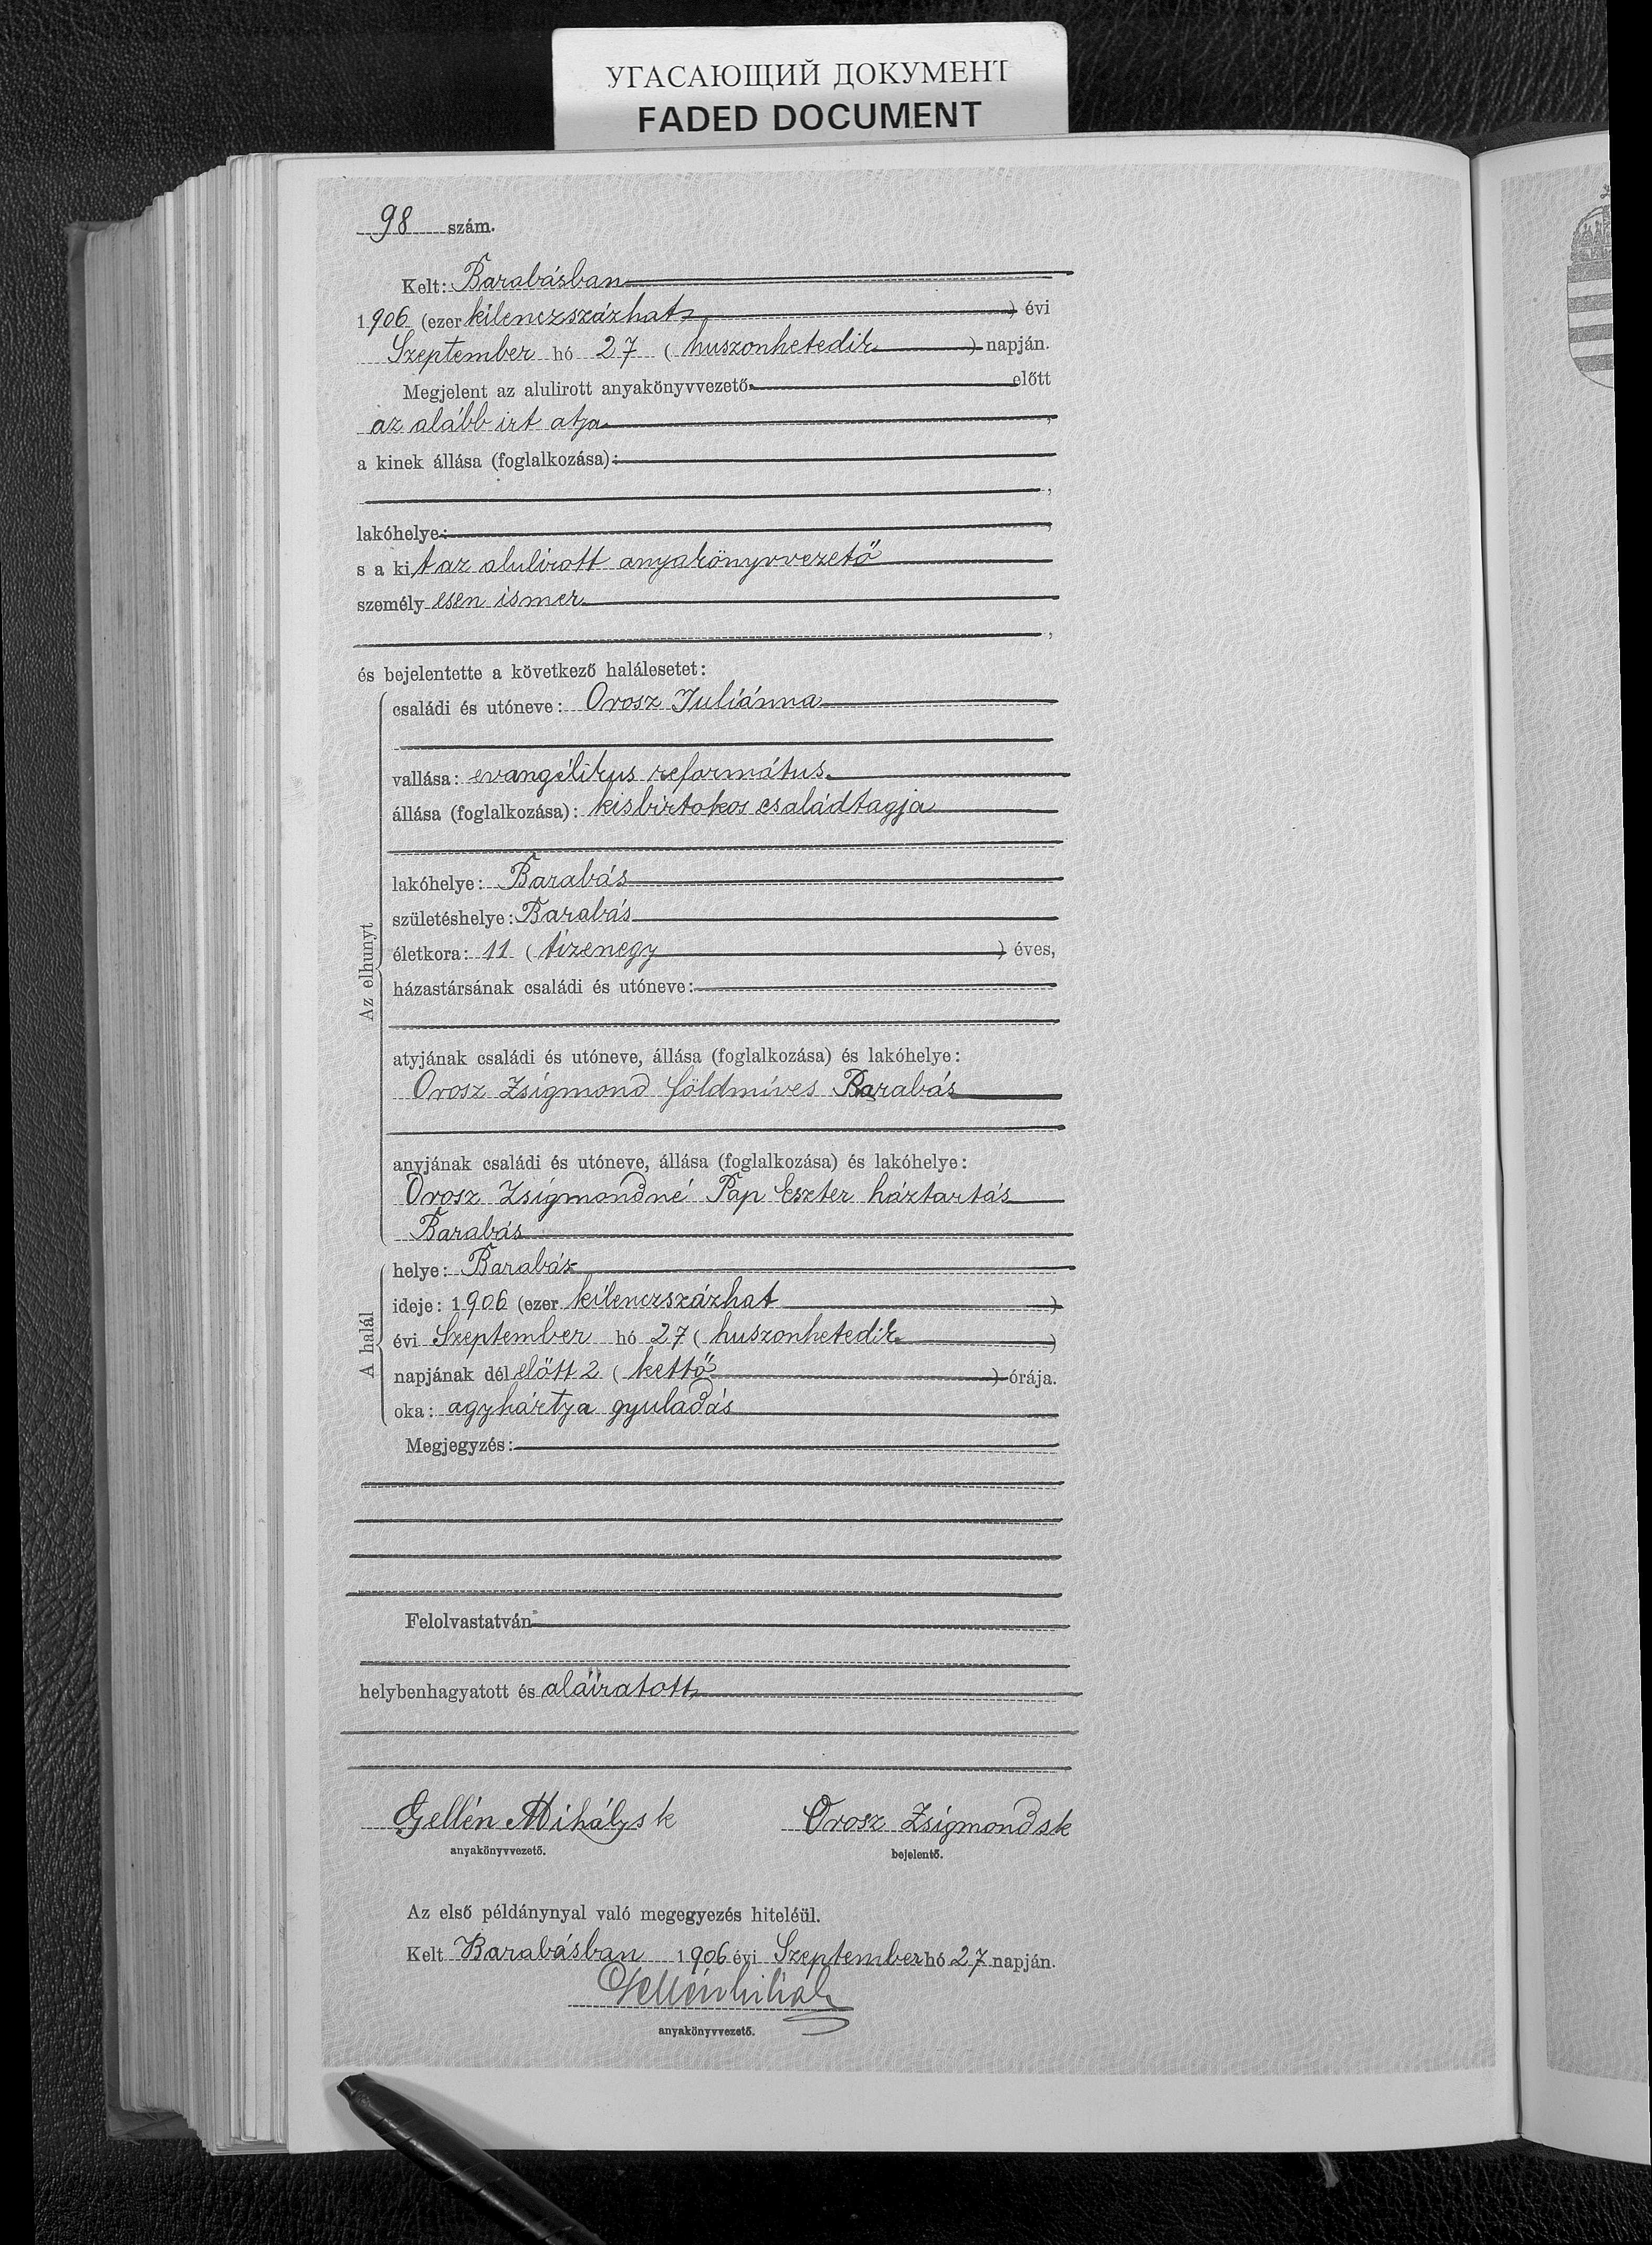 УГАСАЮЩИЙ ДОКУМЕНТ
FADED DOCUMENT
98 szám.
Kelt: Barabásban
1906 (ezer kilenczszázhat) évi
Szeptember hó 27 (huszonhetedik) napján.
Megjelent az alulirott anyakönyvvezető előtt
az alább irt atja,
a kinek állása (foglalkozása):
,
lakóhelye: ,
s a kit az alulirott anyakönyvvezető
személyesen ismer
,
és bejelentette a következő halálesetet:
Az elhunyt
családi és utóneve: Orosz Juliánna
vallása: evangélikus református
állása (foglalkozása): kisbirtokos családtagja
lakóhelye: Barabás
születéshelye: Barabás
életkora: 11 (tizenegy) éves,
házastársának családi és utóneve:
atyjának családi és utóneve, állása (foglalkozása) és lakóhelye:
Orosz Zsigmond földmíves Barabás
anyjának családi és utóneve, állása (foglalkozása) és lakóhelye:
Orosz Zsigmondné Pap Eszter háztartás
Barabás
A halál
helye: Barabás
ideje: 1906 (ezer kilenczszázhat)
évi Szeptember hó 27 (huszonhetedik)
napjának délelőtt 2 (kettő) órája.
oka: agyhártya gyuladás
Megjegyzés:
Felolvastatván
helybenhagyatott és aláiratott
Gellén Mihály sk Orosz Zsigmond sk
anyakönyvvezető. bejelentő.
Az első példánynyal való megegyezés hiteléül.
Kelt Barabásban 1906 évi Szeptember hó 27 napján.
Gellén Mihály
anyakönyvvezető.